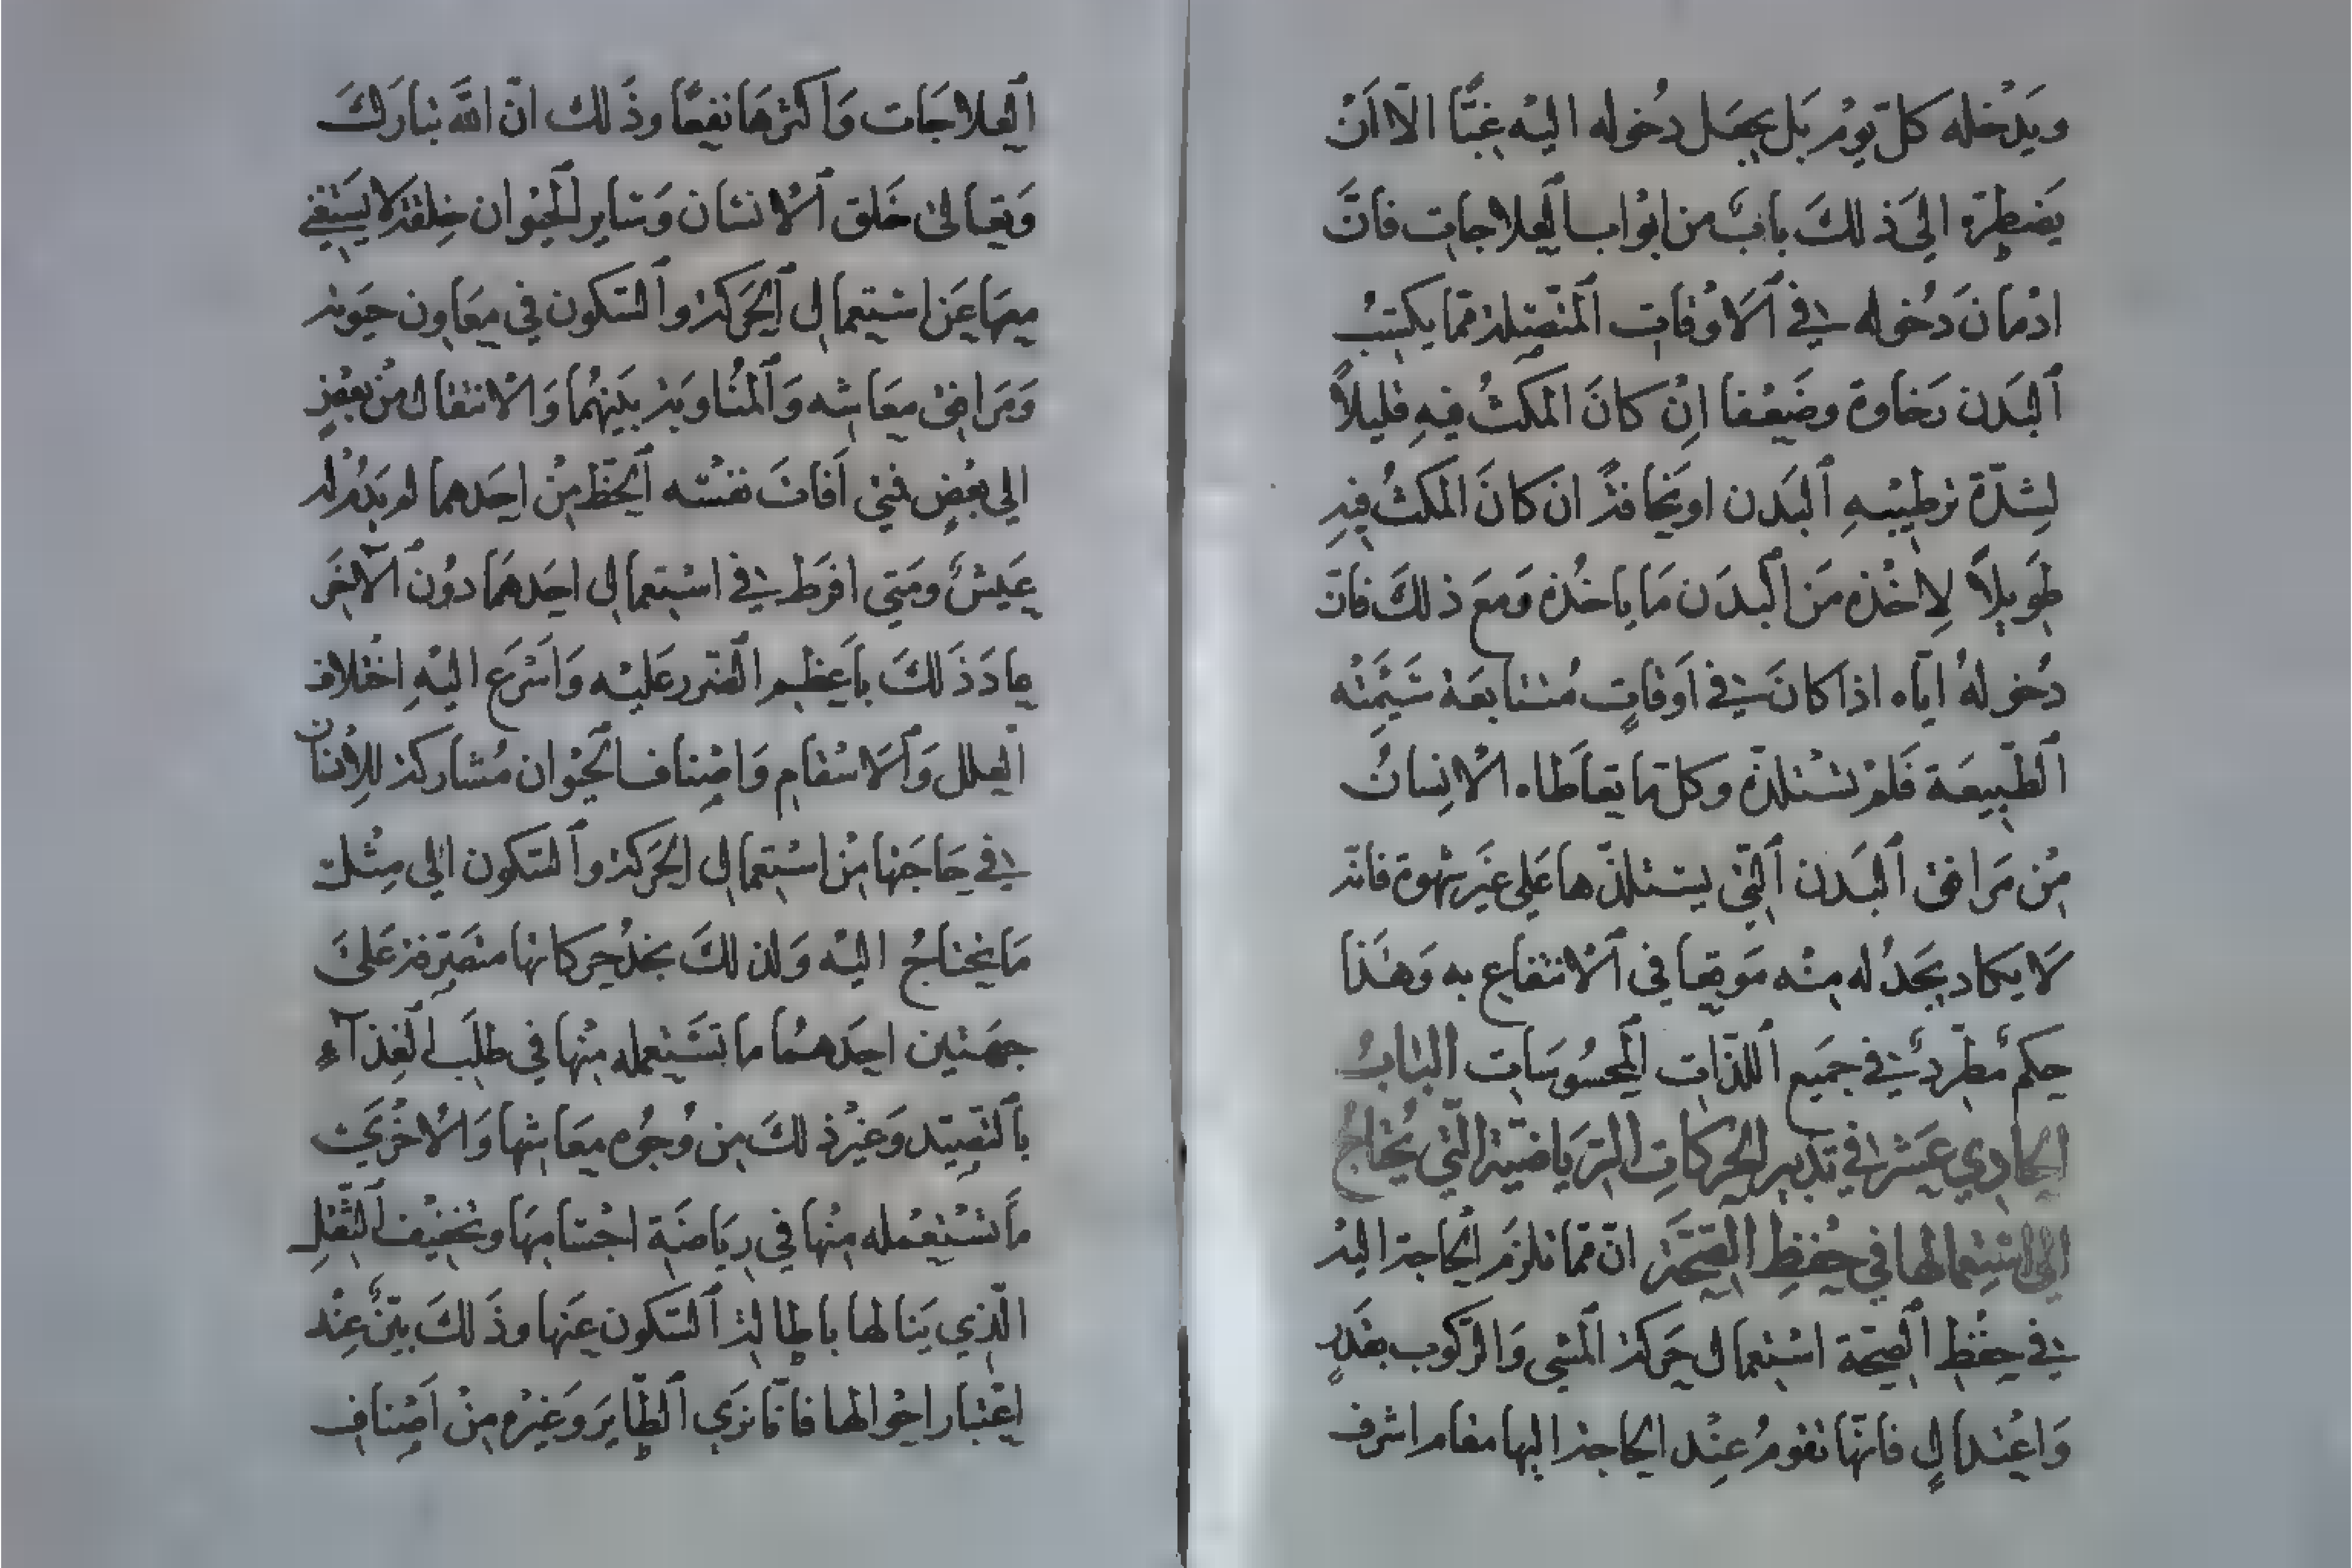 ويَدْخله كلّ يومٍ بَل يجعَل دخُوله اليْه غِبًّا الّا اَنْ
يَضطِرّه الىَ ذلكَ بابٌ من ابْواب اَلْعِلاجات فانَّ
ادْمانَ دُخوله في اَلاوْقات اَلمتّصِلة ممّا يكسِبُ
اَلبَدن رَخاوة وضَعْفا اِنْ كانَ المكثُ فيهِ قليلاً
لِشدّة ترطِيْبهِ اَلبَدن او نَحافةً ان كانَ المكثُ فيه
طَويلاً لِاخْذه مَن اَلبدَن مَا ياخُذه وَمعَ ذلكَ فانّ
دُخولهُ ايّاه اذا كانَ في اَوقاتٍ مُتتابعَة سَئِمَتْه
اَلطّبيعَة فَلمْ تسْتلذّه وكلّ ما يتعاَطاه الْانِسانُ
مِن مَرافق اَلبَدن اَلتّي يستلذّها عَلى غَير شهْوة فانّه
لَا يكاد يجَدُ له مِنْه مَوقِعا في اَلانتفاع به وَهذَا
حكمٌ مطّردٌ في جَميع اَللّذّات اَلمحسُوسَات البَابُ
الحادِي عَشر في تدبير الحرَكاتِ الرّيَاضيّة التّي يُحتاجُ
الى اسْتِعمالها في حِفظِ الصّحَّة انّ ممّا تلزمَ الحاجة اليْه
في حِفْظ اَلصِحّة اسْتعمال حَركة اَلمشي وَالرّكوب بقَدَرٍ
وَاعْتدالٍ فانّها تقومُ عِنْد الحاجة اليها مقام اشرف
اَلعِلاجَات وَاَكثرهَا نفعًا وذَلك انّ اللهَ تبارَكَ
وَتعالىَ خَلق اَلْانسَان وَسَاير اَلحيْوان خِلقَة لا يَسْتغنى
معهَا عَن اسْتِعمال اَلحَركة واَلسّكون في معَاون حَيَوته
وَمَرافق معَاشه وَالمُناوبَة بَينهُما وَالْانتقال مِنْ بعْضٍ
الى بعْضٍ فمَتى اَفاتَ نفسْه اَلحَظ مِنْ احَدهما لم يَدُمْ له
عَيشٌ ومَتى افرَط في اسْتعمال احَدهمَا دوُن اَلآخَر
عادَ ذَلكَ باَعظم اَلضّرر عليْه وَاَسْرَع اليْهِ اخْتلاف
اَلعلل وَاَلاسْقام وَاصْناف اَلحيْوان مُشاركة لِلاِنسَان
في حَاجَتها مِنْ اسْتعمال الحَركة واَلسّكون الى مِثلِ
مَا يحْتاجُ اليْه وَلذلكَ نجدُ حرَكاتها متصَرّفة عَلىَ
جهَتين احدَهما ما تسَتعمله مِنْها في طلَب اَلغِذآء
باَلتصيّد وَغيْر ذلكَ مِن وُجوُه معَاشها وَالْاخْرَى
ماَ تسْتعْمله مِنْها في رِيَاضَة اجْسَامهَا وتخفيْف اَلثّقلِ
الّذي يَنالها باِطالة اَلسّكون عَنها وذَلكَ بيّنٌ عِنْد
اعْتبار احْوالها فانّا نَرَى اَلطّايرَ وَغيْره مِنْ اَصْنافِ